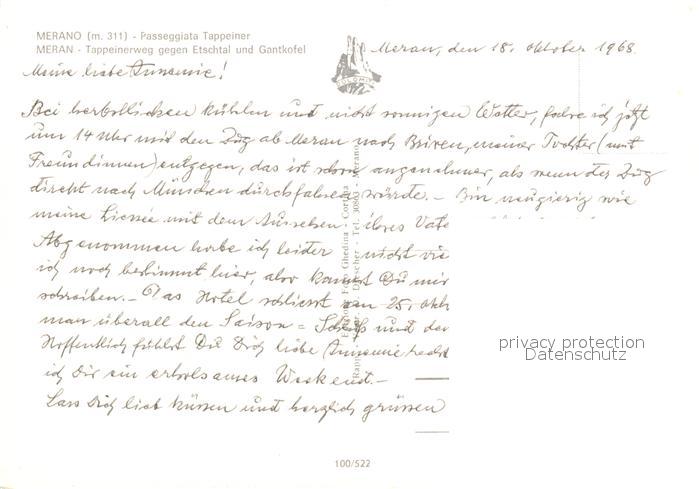 MERANO (m. 311) - Passeggiata Tappeiner
MERAN - Tappeinerweg gegen Etschtal und Gantkofel
DOLOMITI
Meran, den 18. Oktober 1968.
Meine liebe Annamie!
Bei herbstlichem kühlen und nicht sonnigen Wetter, fahre ich jetzt
um 14 Uhr mit dem Zug ab Meran nach Brixen, meiner Tochter (mit
Freundinnen) entgegen, das ist schon angenehmer, als wenn der Zug
direkt nach München durchfahren würde. - Bin neugierig wie
meine mit dem Aussehen ihres Vate
Abgenommen habe ich leider nicht vie
ich noch bestimmt hier, also kannst Du mir
schreiben. - Das Hotel schliesst am 25. Okt
man überall den Saison = Schluß und der
Hoffentlich fühlst Du Dich liebe Annamie recht
ich Dir ein erholsames Weekend. -
Lass Dich lieb küssen und herzlich grüssen
Foto Ghedina - Cortina
Tel. 30893 - Merano
privacy protection
Datenschutz
100/522